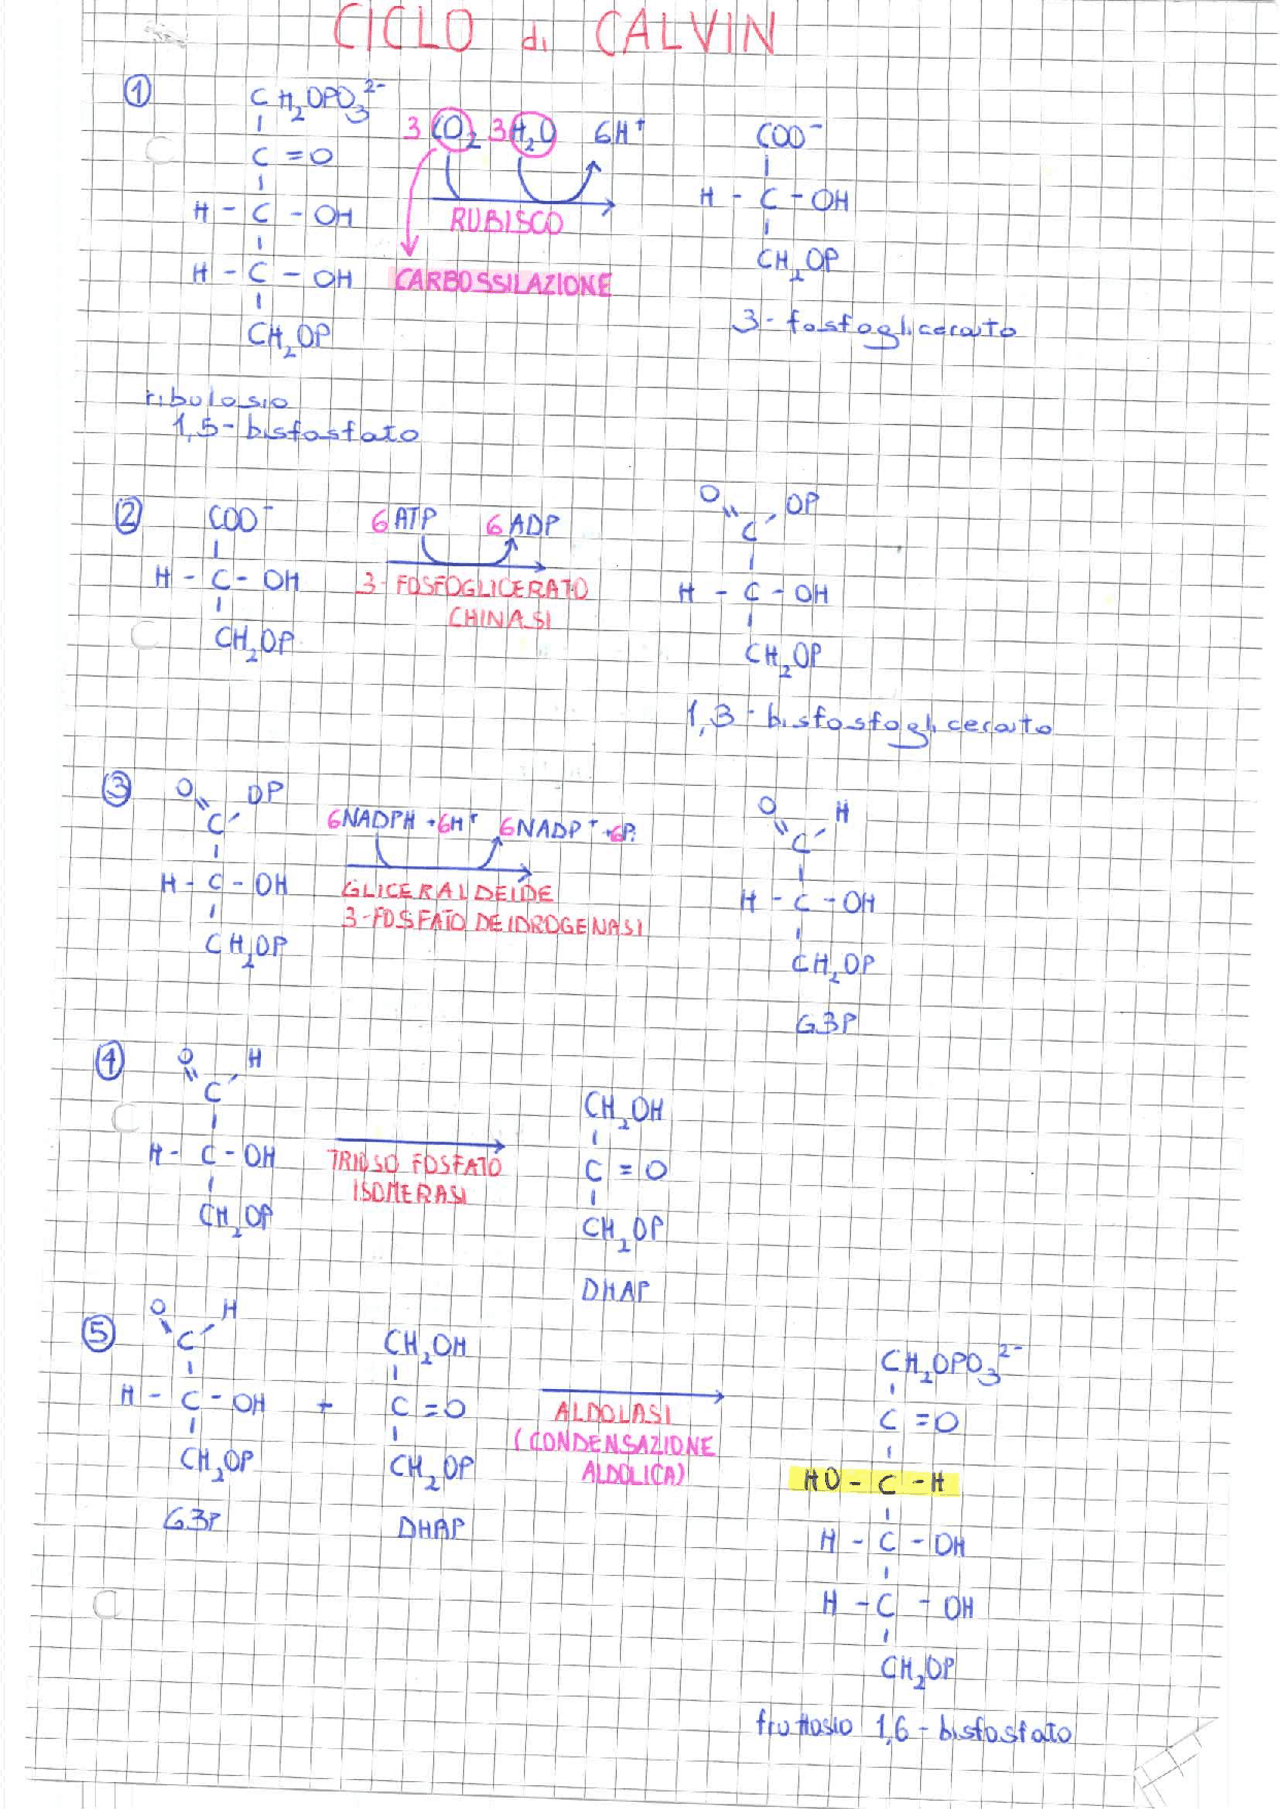 CICLO di CALVIN
①
CH₂OPO₃²⁻
C=O
H-C-OH
H-C-OH
CH₂OP
ribulosio
1,5-bisfosfato
3 CO₂ 3 H₂O 6H⁺
RUBISCO
CARBOSSILAZIONE
COO⁻
H-C-OH
CH₂OP
3-fosfoglicerato
②
COO⁻
H-C-OH
CH₂OP
6ATP 6ADP
3-FOSFOGLICERATO
CHINASI
O OP
C
H-C-OH
CH₂OP
1,3-bisfosfoglicerato
③
O OP
C
H-C-OH
CH₂OP
6NADPH +6H⁺ 6NADP⁺ +6Pi
GLICERALDEIDE
3-FOSFATO DEIDROGENASI
O H
C
H-C-OH
CH₂OP
G3P
④
O H
C
H-C-OH
CH₂OP
TRIOSO FOSFATO
ISOMERASI
CH₂OH
C=O
CH₂OP
DHAP
⑤
O H
C
H-C-OH
CH₂OP
G3P
+
CH₂OH
C=O
CH₂OP
DHAP
ALDOLASI
(CONDENSAZIONE
ALDOLICA)
CH₂OPO₃²⁻
C=O
HO-C-H
H-C-OH
H-C-OH
CH₂OP
fruttosio 1,6-bisfosfato